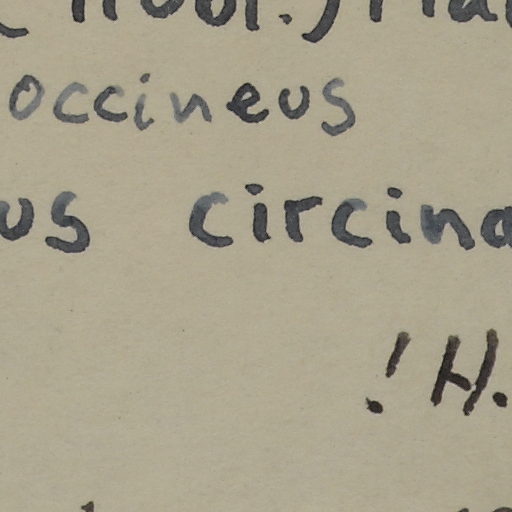 occineus
us circina
! H.